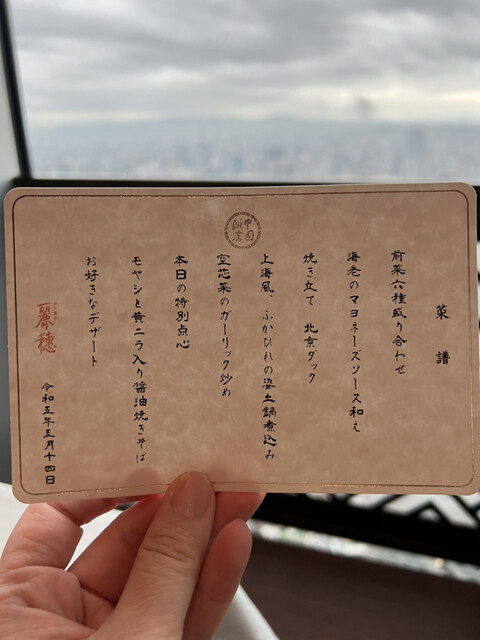 菜譜
前菜六種盛り合わせ
海老のマヨネーズソース和え
焼き立て 北京ダック
上海風、ふかひれの姿土鍋煮込み
空芯菜のガーリック炒め
本日の特別点心
モヤシと黄ニラ入り醤油焼きそば
お好きなデザート
麗穂
令和五年五月十四日